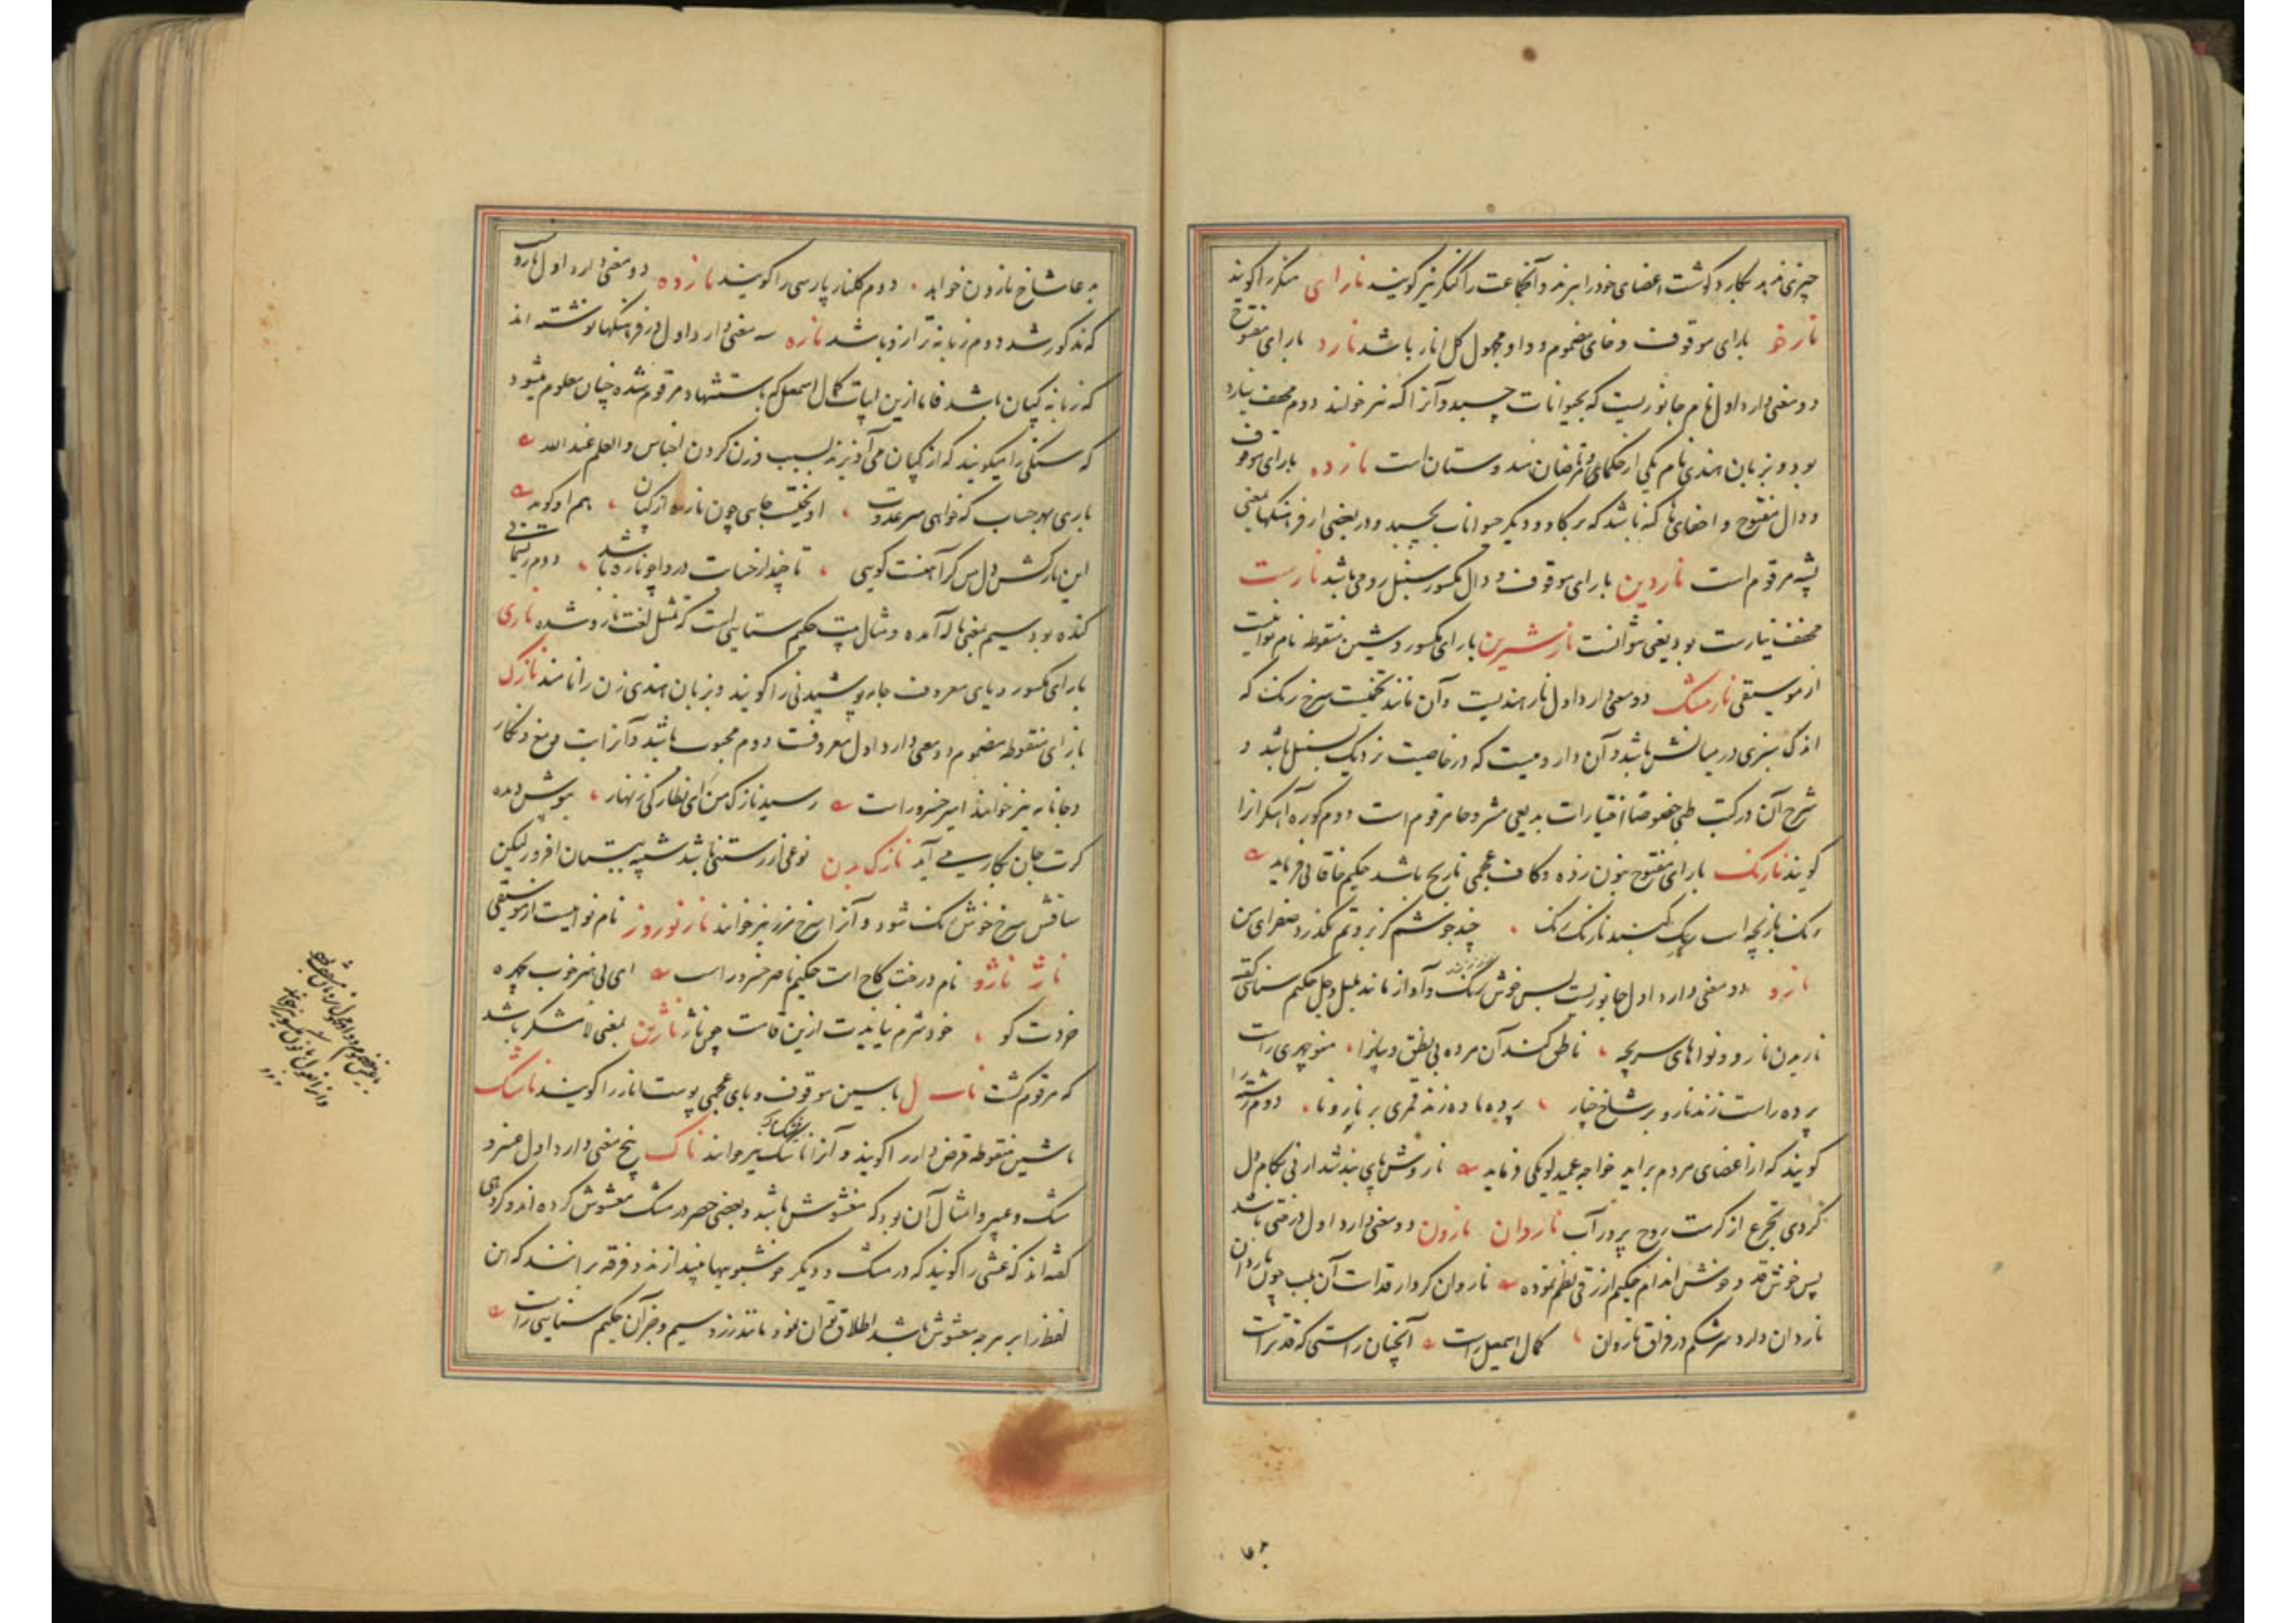 چیزی ندهد بکارد گوشت اعضای خود را ببرند و آنجماعت را کنگر نیز گویند نارای منکر را گویند
نارخو بارای موقوف و خای مضموم و واو مجهول گل انار باشد نارد بارای مفتوح
دو معنی دارد اول نام جانوریست که بحیوانات چسبد و آنرا کنه نیز خوانند دوم مخفف نیارد
بود و بزبان هندی نام یکی از حکمای و مرتاضان هندوستان است نارده بارای موقوف
و دال مفتوح و اخفای ها کنه باشد که بر گاو و دیگر حیوانات بچسبد و در بعضی از فرهنگها بمعنی
پشه مرقوم است ناردین بارای موقوف و دال مکسور سنبل رومی باشد نارست
مخفف نیارست بود یعنی نتوانست نارشیرین بارای مکسور و شین منقوطه نام نوائیست
از موسیقی نارمشک دو معنی دارد اول نار هندیست و آن مانند تخمیست سرخ رنگ که
اندک سبزی در میانش باشد و آن دارویست که در خاصیت نزدیک بسنبل باشد و
شرح آن در کتب طبی خصوصا اختیارات بدیعی مشروحا مرقوم است دوم کوره آهنگر را
گویند نارنگ بارای مفتوح بنون زده و کاف عجمی نارنج باشد حکیم خاقانی فرماید
رنگ بازیچه است گنبد نارنگ رنگ چند جوشم کز بروتم نگذرد صفرای من
نارو دو معنی دارد اول جانوریست بس خوش رنگ و آواز مانند بلبل و جل حکیم سنائی گفته
ناریدن نارو و نواهای سریچه ناطق کند آن مرده بی نطق و بیانرا منوچهری راست
پرده راست زند نارو بر شاخ چنار پرده باده زند قمری بر نارونا دوم رشته را
گویند که از اعضای مردم براید خواجه عمید لویکی فرماید نارو ش پای بند شد از نی بکام دل
کردی تجرع از کرمت روح پرور آب ناروان نارون دو معنی دارد اول درختی باشد
بس خوش قد و خوش اندام حکیم ازرقی نظم نموده ناروان کردار قد است آن بلب چون ناردان
ناردان دارد سرشکم در فراق نارون کمال اسمعیل راست آنچنان راستی که قد تراست
به عا شاخ نارون خواهد دوم گلنار پارسی را گویند نارده دو معنی دارد اول ناروب
که مذکور شد دوم زبانه ترازو باشد ناره سه معنی دارد اول در فرهنگها نوشته اند
که زبانه کپان باشد فاما ازین ابیات کمال اسمعیل که باستشهاد مرقوم شده چنان معلوم میشود
که سنگی را میگویند که از کپان می آویزند بسبب وزن کردن اجناس و العلم عند الله
باری بهر حساب که خواهی سر عدوت آویخته بجایی چون ناره از کپان هم او گوید
این بار کش دل من گر آهنت گویی تا چند از حسات در وا چو ناره باشد دوم ریسمانی
کنده بود سیم بمعنی ناله آمده و مثال بیت حکیم سنائی است که مثل لغت نارو شده ناری
بارای مکسور و یای معروف جامه پوشیدنی را گویند و بزبان هندی زن را نامند نازک
بازای منقوطه مضموم دو معنی دارد اول معروفست دوم محبوب باشد و آنرا بت و مغ و نگار
و جانانه نیز خوانند امیر خسرو راست رسید نازک من ای نظارگی زنهار بهوش
که رت جان بکار می آید نازک بدن نوعی از رستنی باشد شبیه به بستان افروز لیکن
ساقش سرخ خوش رنگ شود و آنرا سرخ مرز نیز خوانند ناز نوروز نام نوائیست از موسیقی
ناژ ناژو نام درخت کاج است حکیم ناصر خسرو راست ای بی هنر خوب چهره
خردت کو خود شرم نیایدت ازین قامت چون ناژ ناژین بمعنی لاشکر باشد
که مرقوم گشت ناسپال باسین موقوف و بای عجمی پوست انار را گویند ناشک
باشین منقوطه قرض دار را گویند و آنرا ناشک نیز خوانند ناک پنج معنی دارد اول عنبر و
مشک و عبیر و امثال آن بود که مغشوش باشد و بعضی حصر در مشک مغشوش کرده اند و گروهی
گفته اند که غشی را گویند که در مشک و دیگر خوشبویها بیندازند و فرقه برانند که این
لفظ را بر هر چه مغشوش باشد اطلاق توان نمود مانند زر و سیم و جز آن حکیم سنایی راست